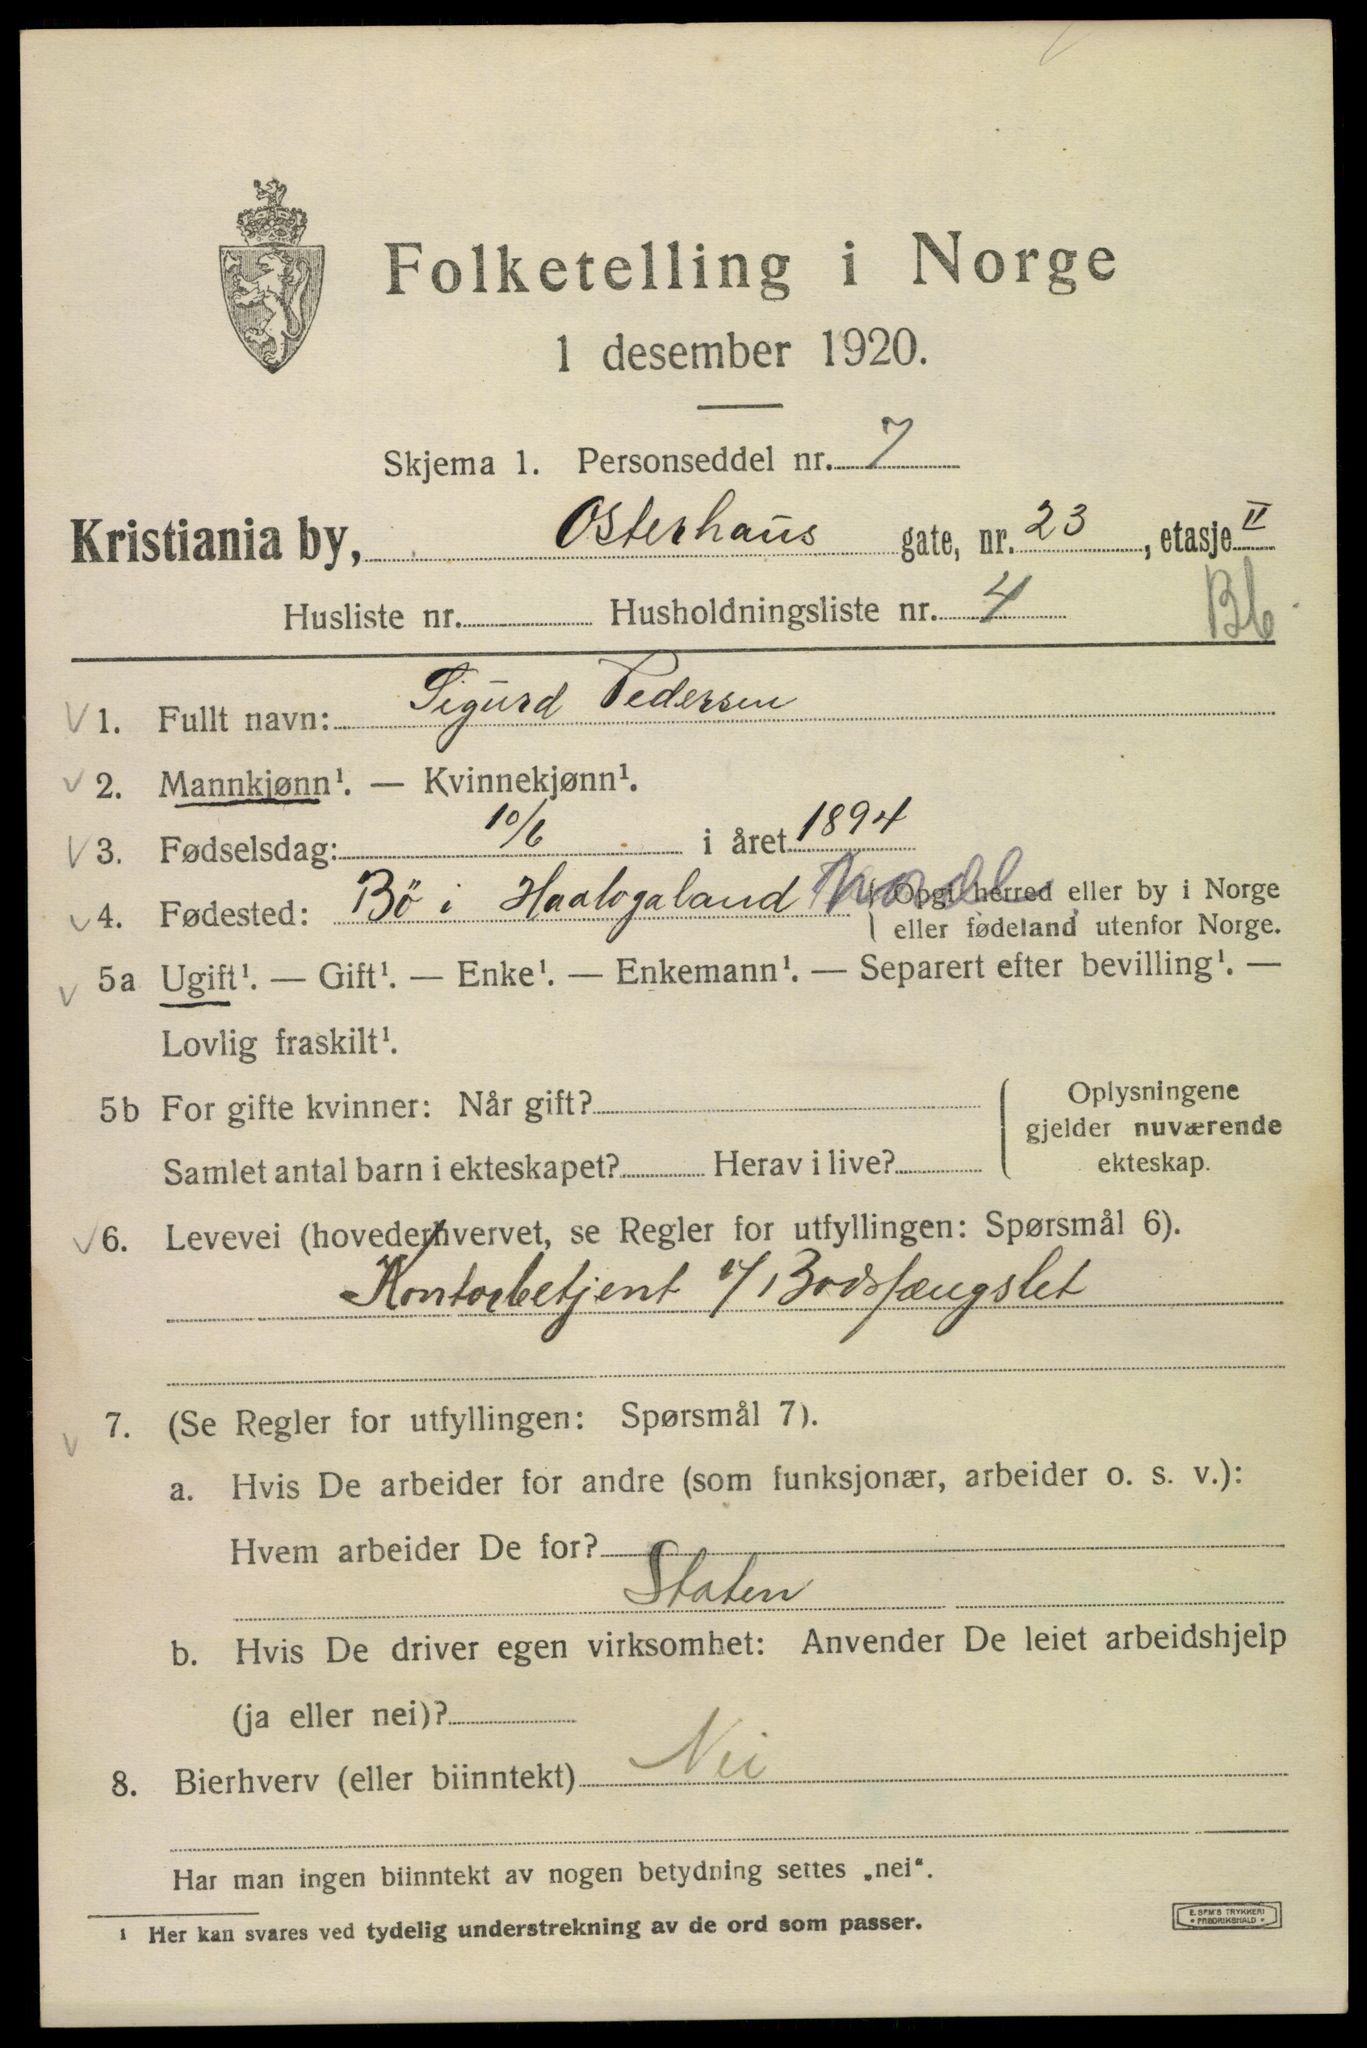 Folketelling i Norge
1 desember 1920.
Skjema 1. Personseddel nr. 7
Kristiania by, Osterhaus gate, nr. 23, etasje II
Husliste nr. Husholdningsliste nr. 4
1. Fullt navn: Sigurd Pedersen
2. Mannkjønn¹. — Kvinnekjønn¹.
3. Fødselsdag: 10/6 i året 1894
4. Fødested: Bö i Haalogaland { Opgi herred eller by i Norge
eller fødeland utenfor Norge.
5a Ugift¹. — Gift¹. — Enke¹. — Enkemann¹. — Separert efter bevilling¹. —
Lovlig fraskilt¹.
5b For gifte kvinner: Når gift? { Oplysningene
gjelder nuværende
Samlet antal barn i ekteskapet? Herav i live?
ekteskap.
6. Levevei (hovederhvervet, se Regler for utfyllingen: Spørsmål 6).
Kontorbetjent v/ Bodsfængslet
7. (Se Regler for utfyllingen: Spørsmål 7).
a. Hvis De arbeider for andre (som funksjonær, arbeider o. s. v.):
Hvem arbeider De for?
Staten
b. Hvis De driver egen virksomhet: Anvender De leiet arbeidshjelp
(ja eller nei)?
8. Bierhverv (eller biinntekt) Nei
Har man ingen biinntekt av nogen betydning settes „nei“.
¹ Her kan svares ved tydelig understrekning av de ord som passer.
E. SEM'S TRYKKERI
• FREDRIKSHALD •